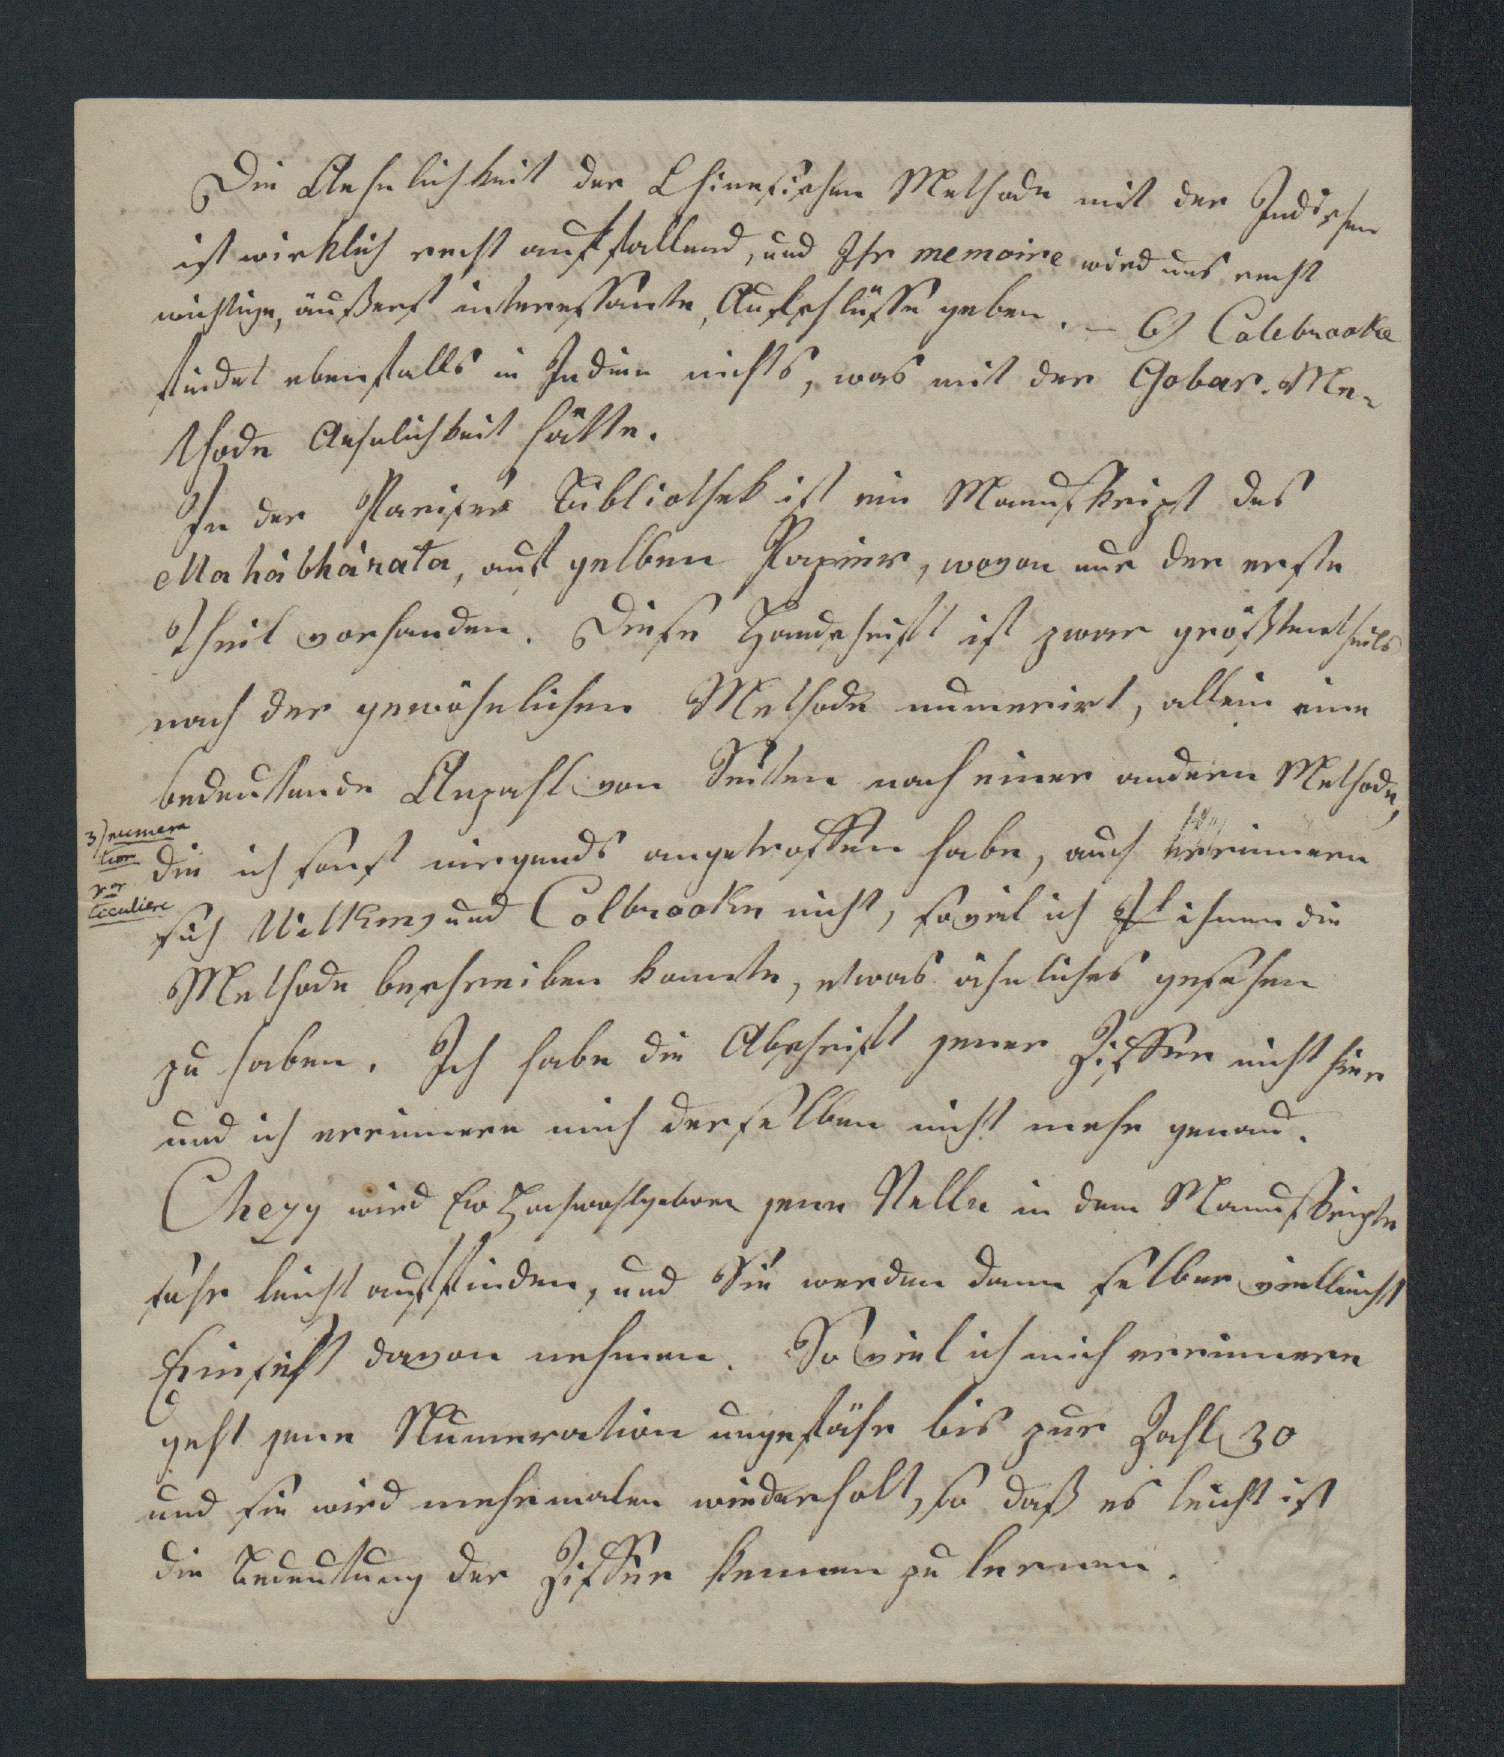 Die Aehnlichkeit der Chinesischen Methode mit der Indischen
ist wirklich recht auffallend, und Ihr memoire wird uns recht
wichtige, äußerst interessante, Aufschlüsse geben. — 6) Colebrooke
findet ebenfalls in Indien nichts, was mit der Gobar-Me-
thode Aehnlichkeit hätte.
In der Pariser Bibliothek ist ein Manuskript des
Mahâbhârata, auf gelben Papier, wovon nur der erste
Theil vorhanden. Diese Handschrift ist zwar größtentheils
nach der gewöhnlichen Methode numerirt, allein eine
bedeutende Anzahl von Seiten nach einer andern Methode,
3) numera
tion
die ich sonst nirgends angetroffen habe, auch erinnern
ticuliere
sich Wilkins und Colbrooke nicht, soviel ich ihnen die
Methode beschreiben konnte, etwas ähnliches gesehen
zu haben. Ich habe die Abschrift jener Ziffern nicht hier
und ich erinnere mich derselben nicht mehr genau.
Chezy wird Ew Hochwohlgeboren jene Stelle in dem Manuskripte
sehr leicht auffinden, und Sie werden dann selber vielleicht
Einsicht davon nehmen. So viel ich mich erinnere
geht jene Numeration ungefähr bis zur Zahl 30
und sie wird mehrmalen wiederholt, so daß es leicht ist
die Bedeutung der Ziffern kennen zu lernen.